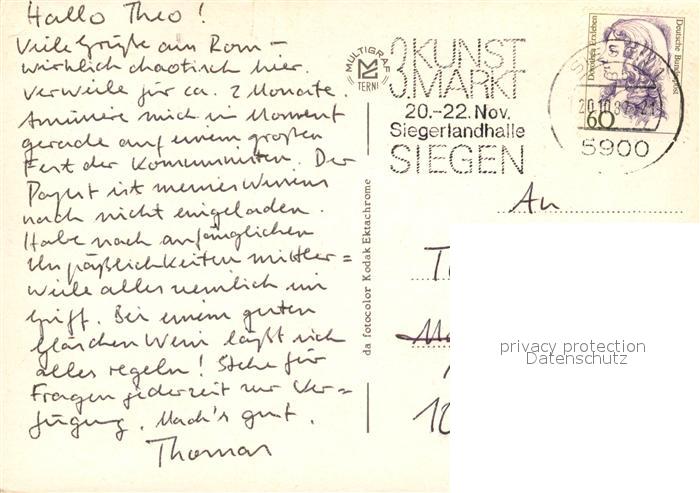 Hallo Theo!
Viele Grüße aus Rom –
wirklich chaotisch hier.
Verweile für ca. 2 Monate.
Amüsiere mich im Moment
gerade auf einem großen
Fest der Kommunisten. Der
Papst ist meines Wissens
nach nicht eingeladen.
Habe nach anfänglichen
Unpäßlichkeiten mittler=
weile alles ziemlich im
Griff. Bei einem guten
Gläschen Wein läßt sich
alles regeln! Stehe für
Fragen jederzeit zur Ver=
fügung. Mach's gut.
Thomas
MULTIGRAF
TERNI
da fotocolor Kodak Ektachrome
3. KUNST
MARKT
20.-22. Nov.
Siegerlandhalle
SIEGEN
Dorothea Erxleben
Deutsche Bundespost
60
5900
An
privacy protection
Datenschutz